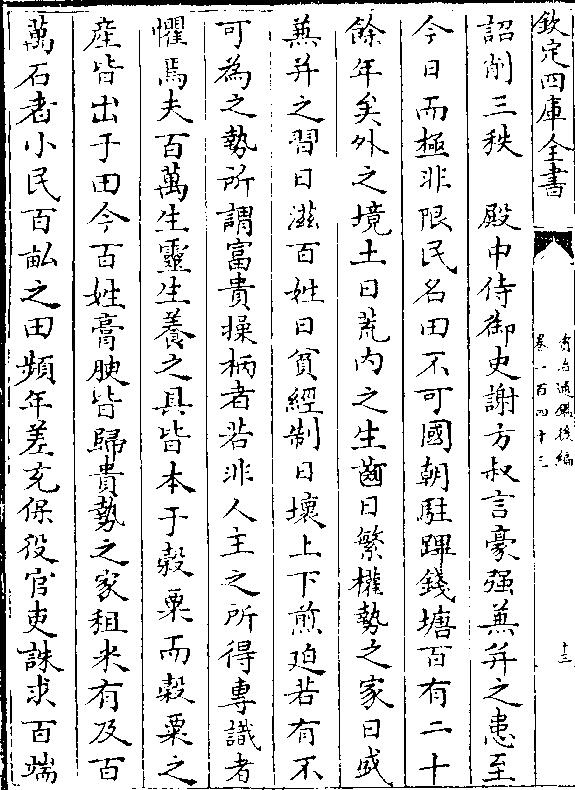 欽定四庫全書
資治通鑑後編
卷一百四十三
十三
詔削三秩　殿中侍御史謝方叔言豪强兼并之患至
今日而極非限民名田不可國朝駐蹕錢塘百有二十
餘年矣外之境土日荒内之生齒日繁權勢之家日盛
兼并之習日滋百姓日貧經制日壞上下煎迫若有不
可為之勢所謂富貴操柄者若非人主之所得專識者
懼焉夫百萬生靈生養之具皆本于穀粟而穀粟之
産皆出于田今百姓膏腴皆歸貴勢之家租米有及百
萬石者小民百畝之田頻年差充保役官吏誅求百端